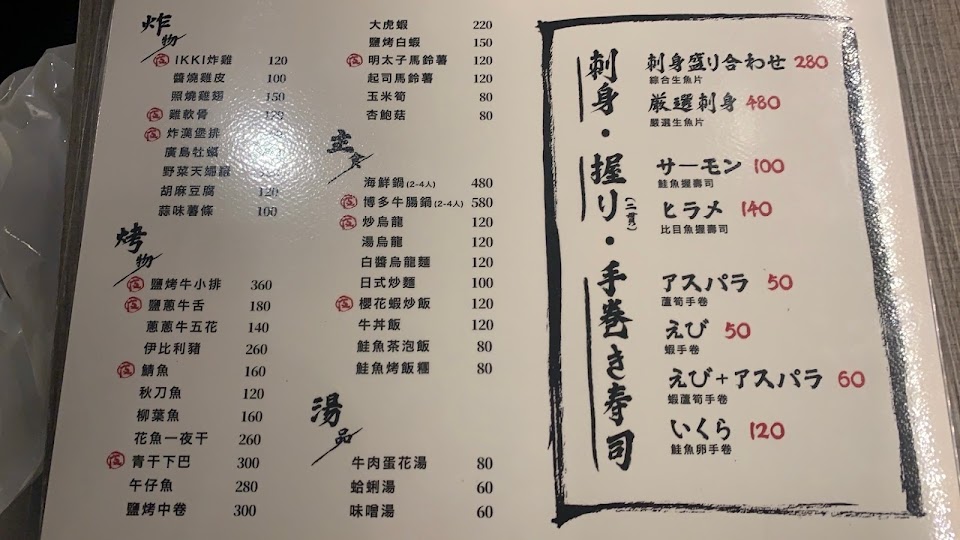 炸物
IKKI炸雞 120
醬燒雞皮 100
照燒雞翅 150
雞軟骨 120
炸漢堡排
廣島牡蠣
野菜天婦羅
胡麻豆腐 120
蒜味薯條 100
烤物
鹽烤牛小排 360
鹽蔥牛舌 180
蔥蔥牛五花 140
伊比利豬 260
鯖魚 160
秋刀魚 120
柳葉魚 160
花魚一夜干 260
青干下巴 300
午仔魚 280
鹽烤中卷 300
大虎蝦 220
鹽烤白蝦 150
明太子馬鈴薯 120
起司馬鈴薯 120
玉米筍 80
杏鮑菇 80
主食
海鮮鍋(2-4人) 480
博多牛腸鍋(2-4人) 580
炒烏龍 120
湯烏龍 120
白醬烏龍麵 120
日式炒麵 100
櫻花蝦炒飯 120
牛丼飯 120
鮭魚茶泡飯 80
鮭魚烤飯糰 80
湯品
牛肉蛋花湯 80
蛤蜊湯 60
味噌湯 60
刺身・握り(二貫)・手巻き寿司
刺身盛り合わせ 280
綜合生魚片
厳選刺身 480
嚴選生魚片
サーモン 100
鮭魚握壽司
ヒラメ 140
比目魚握壽司
アスパラ 50
蘆筍手卷
えび 50
蝦手卷
えび+アスパラ 60
蝦蘆筍手卷
いくら 120
鮭魚卵手卷